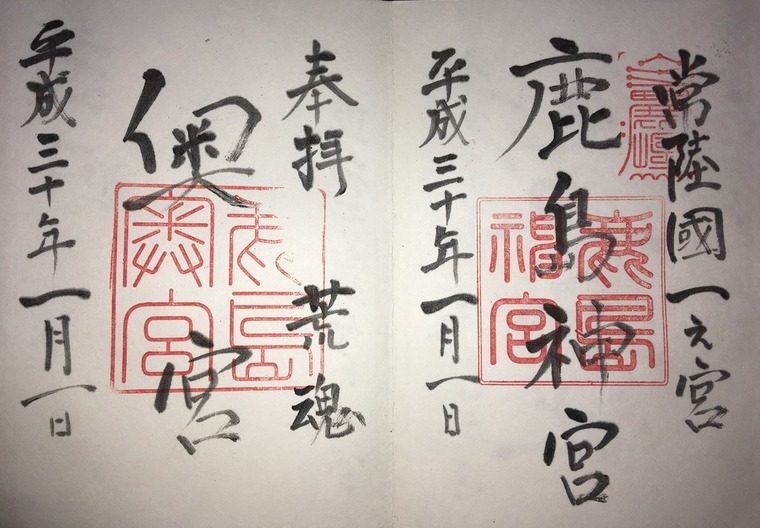 常陸國一之宮
鹿島神宮
鹿島神宮
平成三十年一月一日
奉拝 荒魂
奥宮
鹿島奥宮
平成三十年一月一日